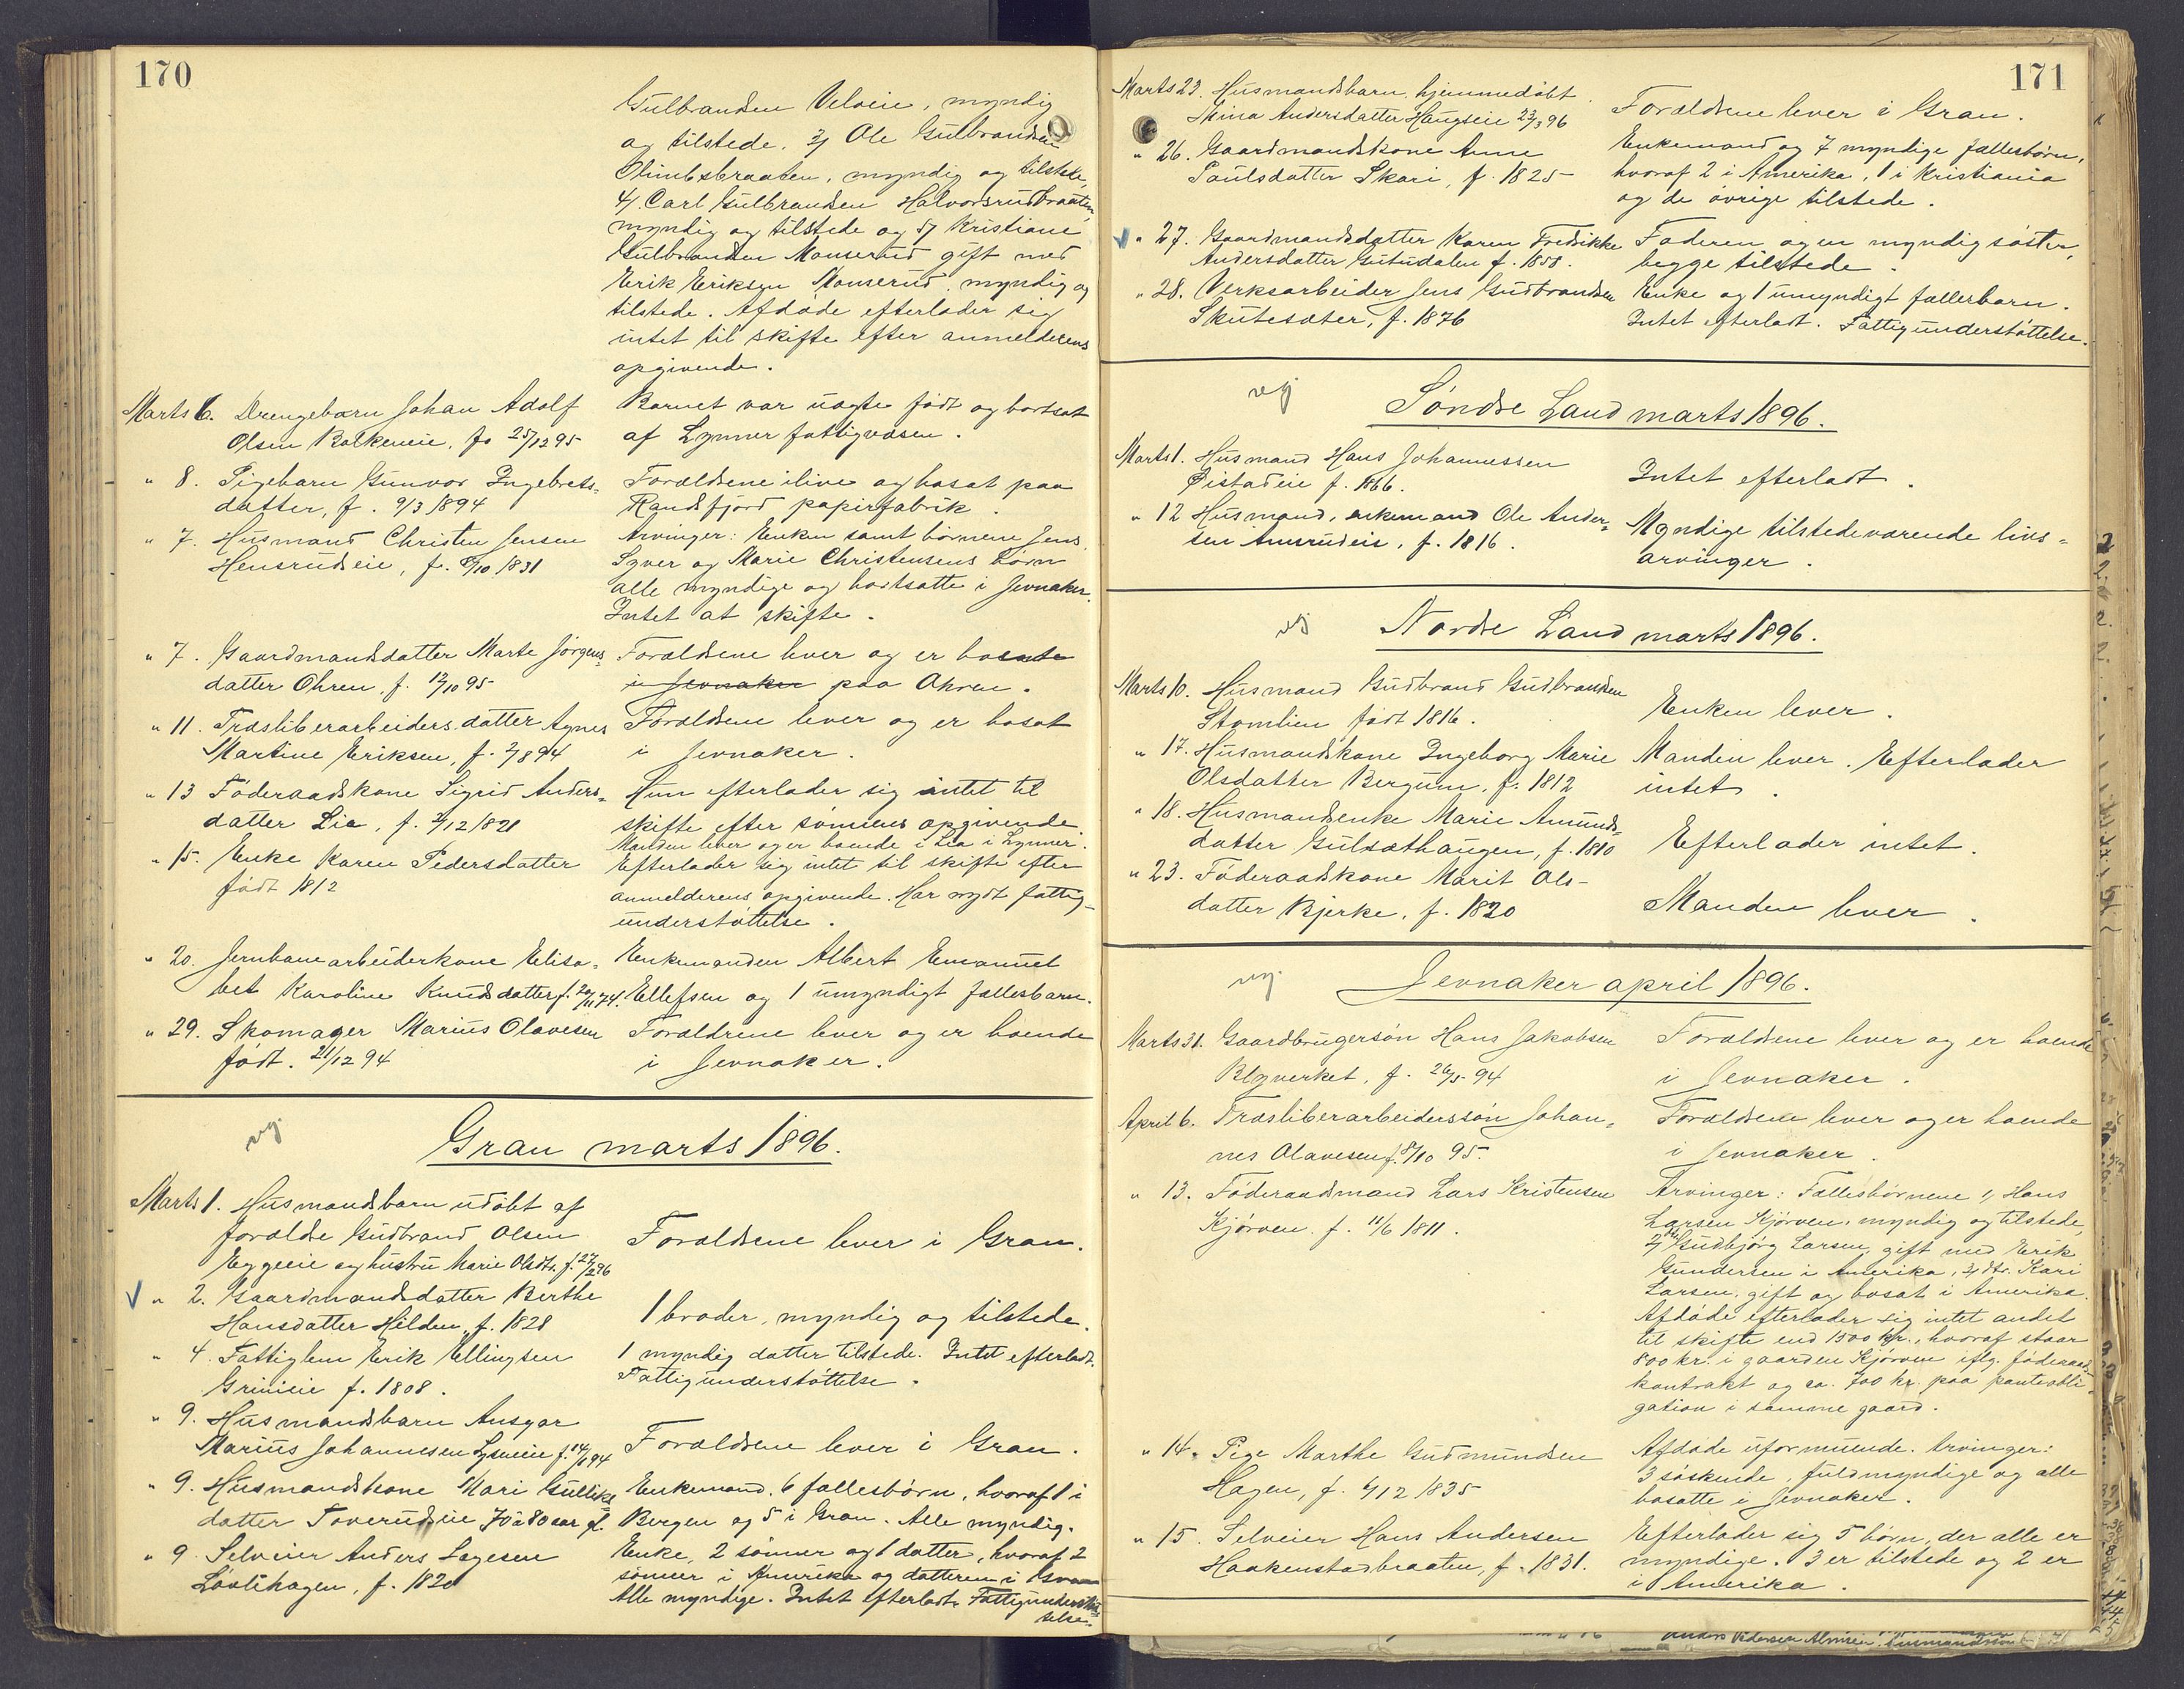 170
Gulbrandsen Velseie, myndig
og tilstede. 3/ Ole Gulbrandsen
Olimbsbraaten, myndig og tilstede,
4/ Carl Gulbrandsen Halvorsrudbraaten,
myndig og tilstede og 5/ Kristiane
Gulbrandsen Monserud gift med
Erik Eriksen Monserud, myndig og
tilstede. Afdøde efterlader sig
intet til skifte efter anmelderens
opgivende.
Marts 6. Drengebarn Johan Adolf
Olsen Balkeneie, fø 25/12 95
Barnet var uægte født og bortsat
af Lynner fattigvæsen.
" 8. Pigebarn Gunvor Ingebrets-
datter, f. 9/3 1894
Forældrene ilive og bosat paa
Randsfjord papirfabrik.
" 7. Husmand Christen Jensen
Hensrudseie, f. 8/10 1831
Arvinger: Enken samt børnene Jens,
Syver og Marie Christensens børn
alle myndige og bortsatte i Jevnaker.
Intet at skifte.
" 7. Gaardmandsdatter Marte Jørgens-
datter Ohren, f. 12/10 95
Forældrene lever og er bosatte
i Jevnaker paa Ohren.
" 11. Træsliberarbeiders datter Agnes
Martine Eriksen, f. 2/8 94
Forældrene lever og er bosat
i Jevnaker.
" 13 Føderaadskone Sigrid Anders-
datter Lia, f. 2/12 1821
Hun efterlader sig intet til
skifte efter sønnens opgivende.
Manden lever og er boende i Lia i Lynner.
" 15. Enke Karen Pedersdatter
født 1812
Efterlader sig intet til skifte efter
anmelderens opgivende. Har nydt fattig-
understøttelse.
" 20. Jernbanearbeiderkone Elisa-
bet Karoline Knudsdatter f. 20/11 74.
Enkemanden Albert Emanuel
Ellefsen og 1 umyndigt fællesbarn.
" 29. Skomager Marius Olavesen
født. 21/12 94
Forældrene lever og er boende
i Jevnaker.
Gran marts 1896.
Marts 1. Husmandsbarn udøbt af
forældre Gudbrand Olsen
Eggeeie og hustru Marie Olsdtr. f. 27/2 96
Forældrene lever i Gran.
" 2. Gaardmandsdatter Berthe
Hansdatter Hilden, f. 1828
1 broder, myndig og tilstede.
" 4. Fattiglem Erik Ellingsen
Grinieie f. 1808.
1 myndig datter tilstede. Intet efterladt.
Fattigunderstøttelse.
" 9. Husmandsbarn Ansgar
Marius Johannesen Lysneie f. 14/1 94
Forældrene lever i Gran.
" 9. Husmandskone Mari Gulliks-
datter Toverudseie 70 à 80 aar gl.
Enkemand. 6 fællesbørn, hvoraf 1 i
Bergen og 5 i Gran. Alle myndig.
" 9. Selveier Anders Lagesen
Løvlihagen, f. 1820
Enke, 2 sønner og 1 datter, hvoraf 2
sønner i Amerika og datteren i Gran
Alle myndige. Intet efterladt. Fattigunderstøt-
telse.
171
Marts 23. Husmandsbarn, hjemmedøbt
Mina Andersdatter Haugseie 23/3 96
Forældrene lever i Gran.
" 26. Gaardmandskone Anne
Paulsdatter Skari, f. 1825
Enkemand og 7 myndige fællesbørn,
hvoraf 2 i Amerika, 1 i Kristiania
og de øvrige tilstede.
" 27. Gaardmandsdatter Karen Fredrikke
Andersdatter f. 1858.
Faderen og en myndig søster,
begge tilstede.
" 28. Verksarbeider Jens Gudbrandsen
Skutesæter, f. 1876
Enke og 1 umyndigt fællesbarn.
Intet efterladt. Fattigunderstøttelse.
Søndre Land marts 1896.
Marts 1. Husmand Hans Johannessen
Øistadeie f. 1866.
Intet efterladt.
" 12 Husmand, enkemand Ole Ander-
sen Amrudeie, f. 1816.
Myndige tilstedeværende livs-
arvinger.
Nordre Land marts 1896.
Marts 10. Husmand Gudbrand Gudbrandsen
Stomlien født 1816.
Enken lever.
" 17. Husmandskone Ingeborg Marie
Olsdatter Bergum, f. 1812
Manden lever. Efterlader
intet.
" 18. Husmandsenke Marie Amunds-
datter Gulsæthaugen, f. 1810
Efterlader intet.
" 23. Føderaadskone Marit Ols-
datter Bjerke, f. 1820
Manden lever.
Jevnaker april 1896.
Marts 31. Gaardbrugersøn Hans Jakobsen
Blyverket, f. 26/5 94
Forældrene lever og er boende
i Jevnaker.
April 6. Træsliberarbeiderssøn Johan-
nes Olavesen f. 8/10 95.
Forældrene lever og er boende
i Jevnaker.
" 13. Føderaadmand Lars Kristensen
Kjørven f. 11/6 1811.
Arvinger: Fællesbørnene 1, Hans
Larsen Kjørven, myndig og tilstede,
2/ Gudbjørg Larsen, gift med Erik
Gundersen i Amerika, 3/ dtr. Kari
Larsen, gift og bosat i Amerika.
Afdøde efterlader sig intet andet
til skifte end 1500 kr., hvoraf staar
800 kr. i gaarden Kjørven iflg. føderaad-
kontrakt og ca. 700 kr. paa panteobli-
gation i samme gaard.
" 14. Pige Marthe Gudmundsen
Hagen, f. 6/12 1835
Afdøde uformuende. Arvinger:
3 søskende, fuldmyndige og alle
bosatte i Jevnaker.
" 15. Selveier Hans Andersen
Haakenstadbraaten, f. 1831.
Efterlader sig 5 børn, der alle er
myndige. 3 er tilstede og 2 er
i Amerika.